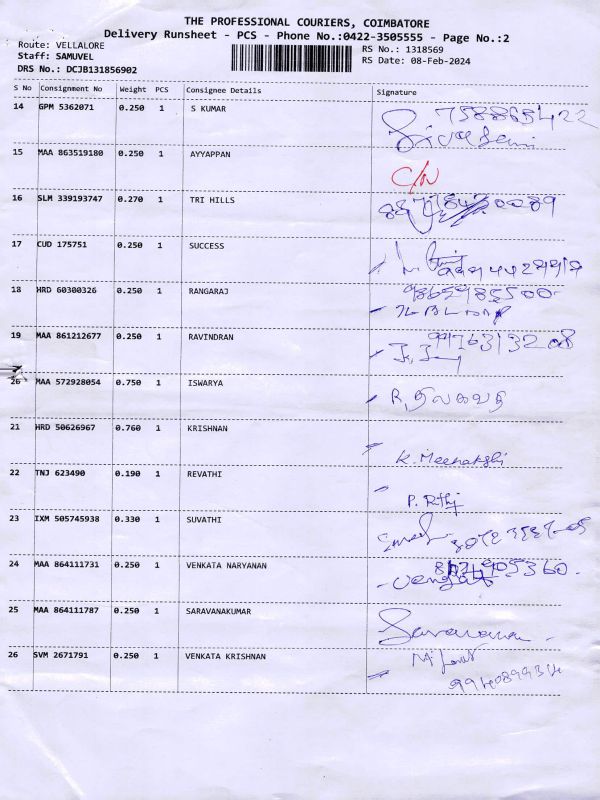 THE PROFESSIONAL COURIERS, COIMBATORE
Delivery Runsheet - PCS - Phone No.:0422-3505555 - Page No.:2
Route: VELLALORE
Staff: SAMUVEL
DRS No.: DCJB131856902
RS No.: 1318569
RS Date: 08-Feb-2024
S No Consignment No Weight PCS Consignee Details Signature
14 GPM 5362071 0.250 1 S KUMAR
15 MAA 863519180 0.250 1 AYYAPPAN C/N
16 SLM 339193747 0.270 1 TRI HILLS
17 CUD 175751 0.250 1 SUCCESS
18 HRD 60300326 0.250 1 RANGARAJ
19 MAA 861212677 0.250 1 RAVINDRAN
20 MAA 572928054 0.750 1 ISWARYA R. திலகவதி
21 HRD 50626967 0.760 1 KRISHNAN K. Meenakshi
22 TNJ 623490 0.190 1 REVATHI
23 IXM 505745938 0.330 1 SUVATHI
24 MAA 864111731 0.250 1 VENKATA NARYANAN
25 MAA 864111787 0.250 1 SARAVANAKUMAR
26 SVM 2671791 0.250 1 VENKATA KRISHNAN